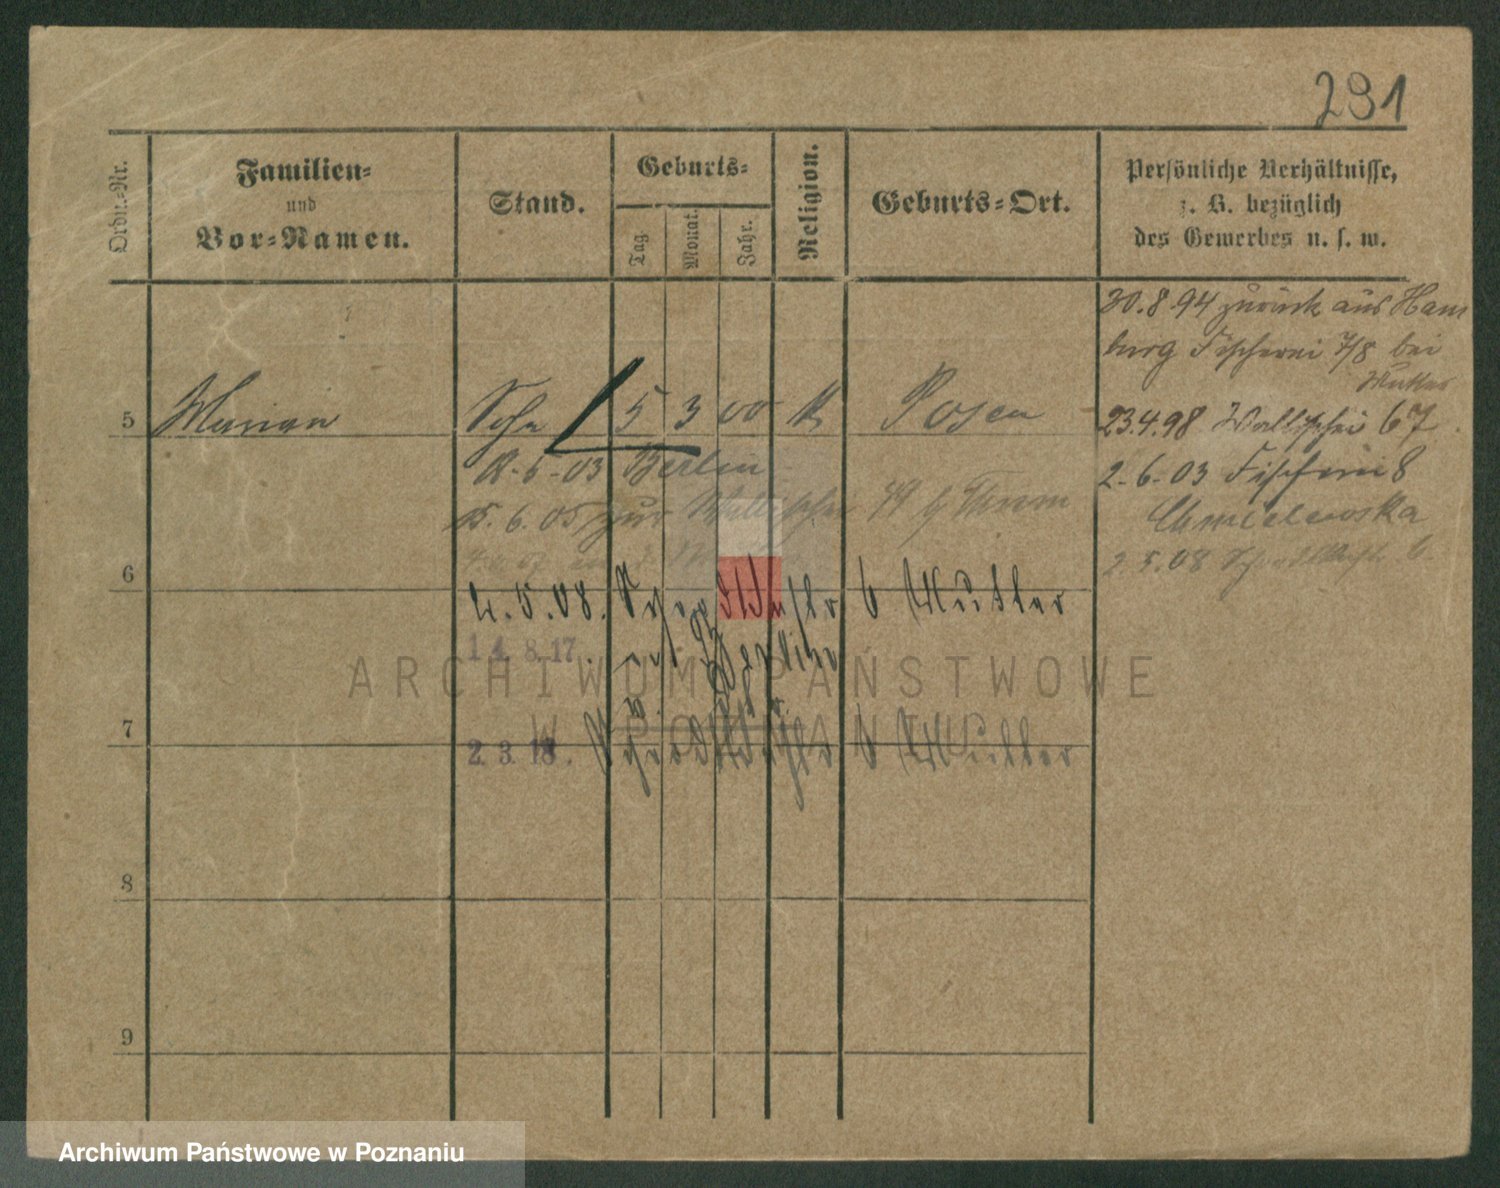 291
Ordn.-Nr.
Familien-
und
Vor-Namen.
Stand.
Geburts-
Tag.
Monat.
Jahr.
Religion.
Geburts-Ort.
Persönliche Verhältnisse,
z. B. bezüglich
des Gewerbes u. s. w.
30.8.94 zurück aus Ham
burg Fischerei 7/8 bei
Mutter
5 Marian Sohn 5 3 00 K Posen
23.4.98 Wallischei 67.
2-6-03 Fischerei 8
-5-03 Berlin
15.6.05 zur Wallischei 49
Chmielewska
2.5.08
6
4.5.08. 6 Mutter
14.8.17.
7
2.3.18. 6 Mutter
8
9
ARCHIWUM PAŃSTWOWE
W POZNANIU
Archiwum Państwowe w Poznaniu